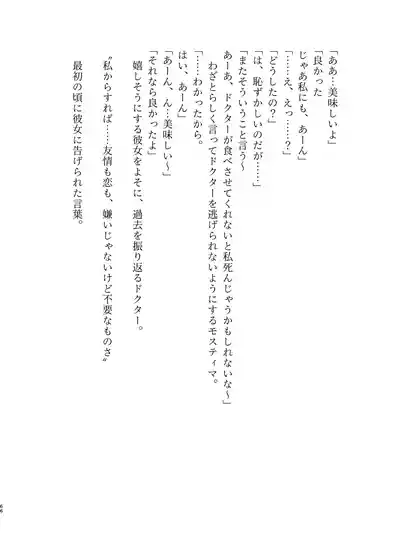 「ああ…美味しいよ」
「良かった
じゃあ私にも、あーん」
「……え、えっ……？」
「どうしたの？」
「は、恥ずかしいのだが……」
「またそういうこと言う〜
あーあ、ドクターが食べさせてくれないと私死んじゃうかもしれないな〜」
わざとらしく言ってドクターを逃げられないようにするモスティマ。
「……わかったから。
はい、あーん」
「あーん、ん…美味しい〜」
「それなら良かったよ」
嬉しそうにする彼女をよそに、過去を振り返るドクター。
〝私からすれば……友情も恋も、嫌いじゃないけど不要なものさ〟
最初の頃に彼女に告げられた言葉。